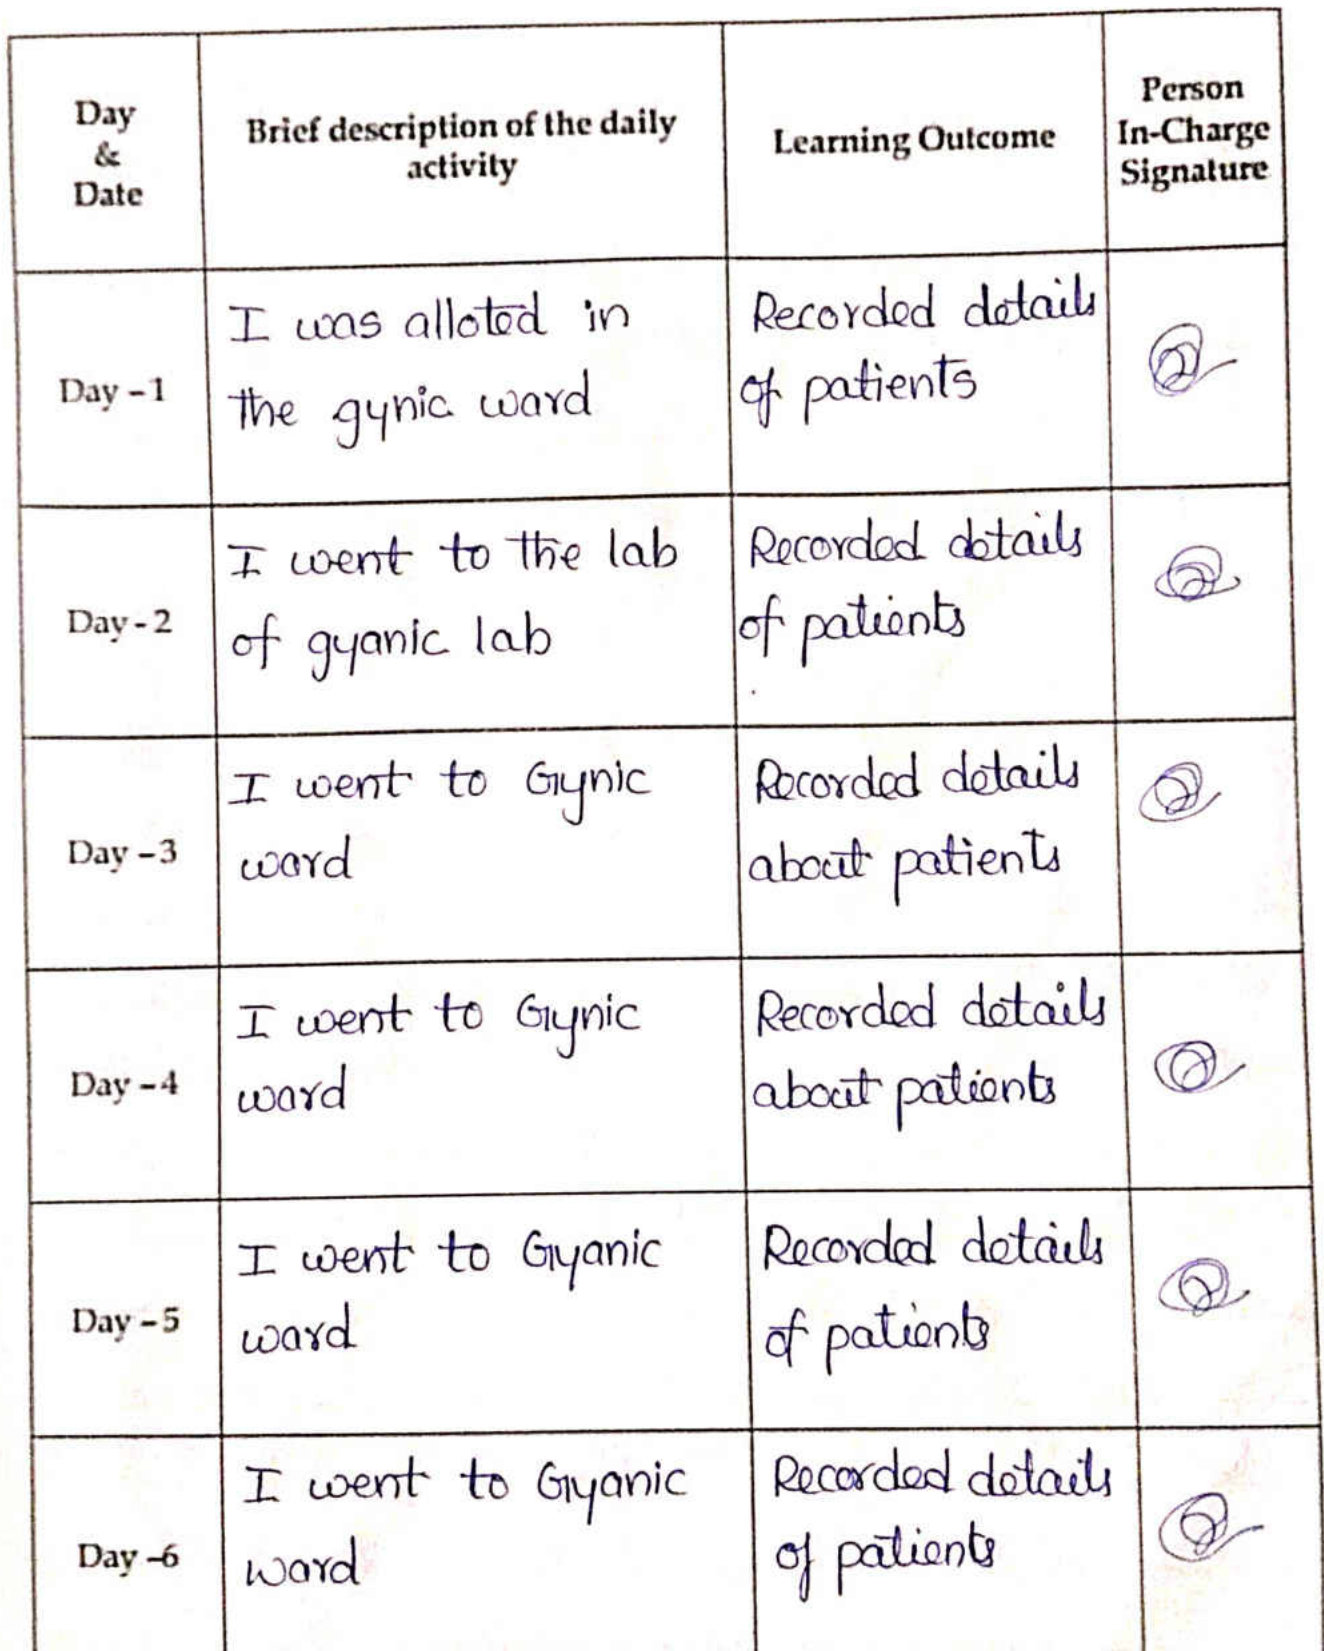 Day
&
Date
Brief description of the daily
activity
Learning Outcome
Person
In-Charge
Signature
Day - 1
I was alloted in
the gynic ward
Recorded details
of patients
Day - 2
I went to the lab
of gyanic lab
Recorded details
of patients
Day - 3
I went to Gynic
ward
Recorded details
about patients
Day - 4
I went to Gynic
ward
Recorded details
about patients
Day - 5
I went to Gyanic
ward
Recorded details
of patients
Day - 6
I went to Gyanic
ward
Recorded details
of patients